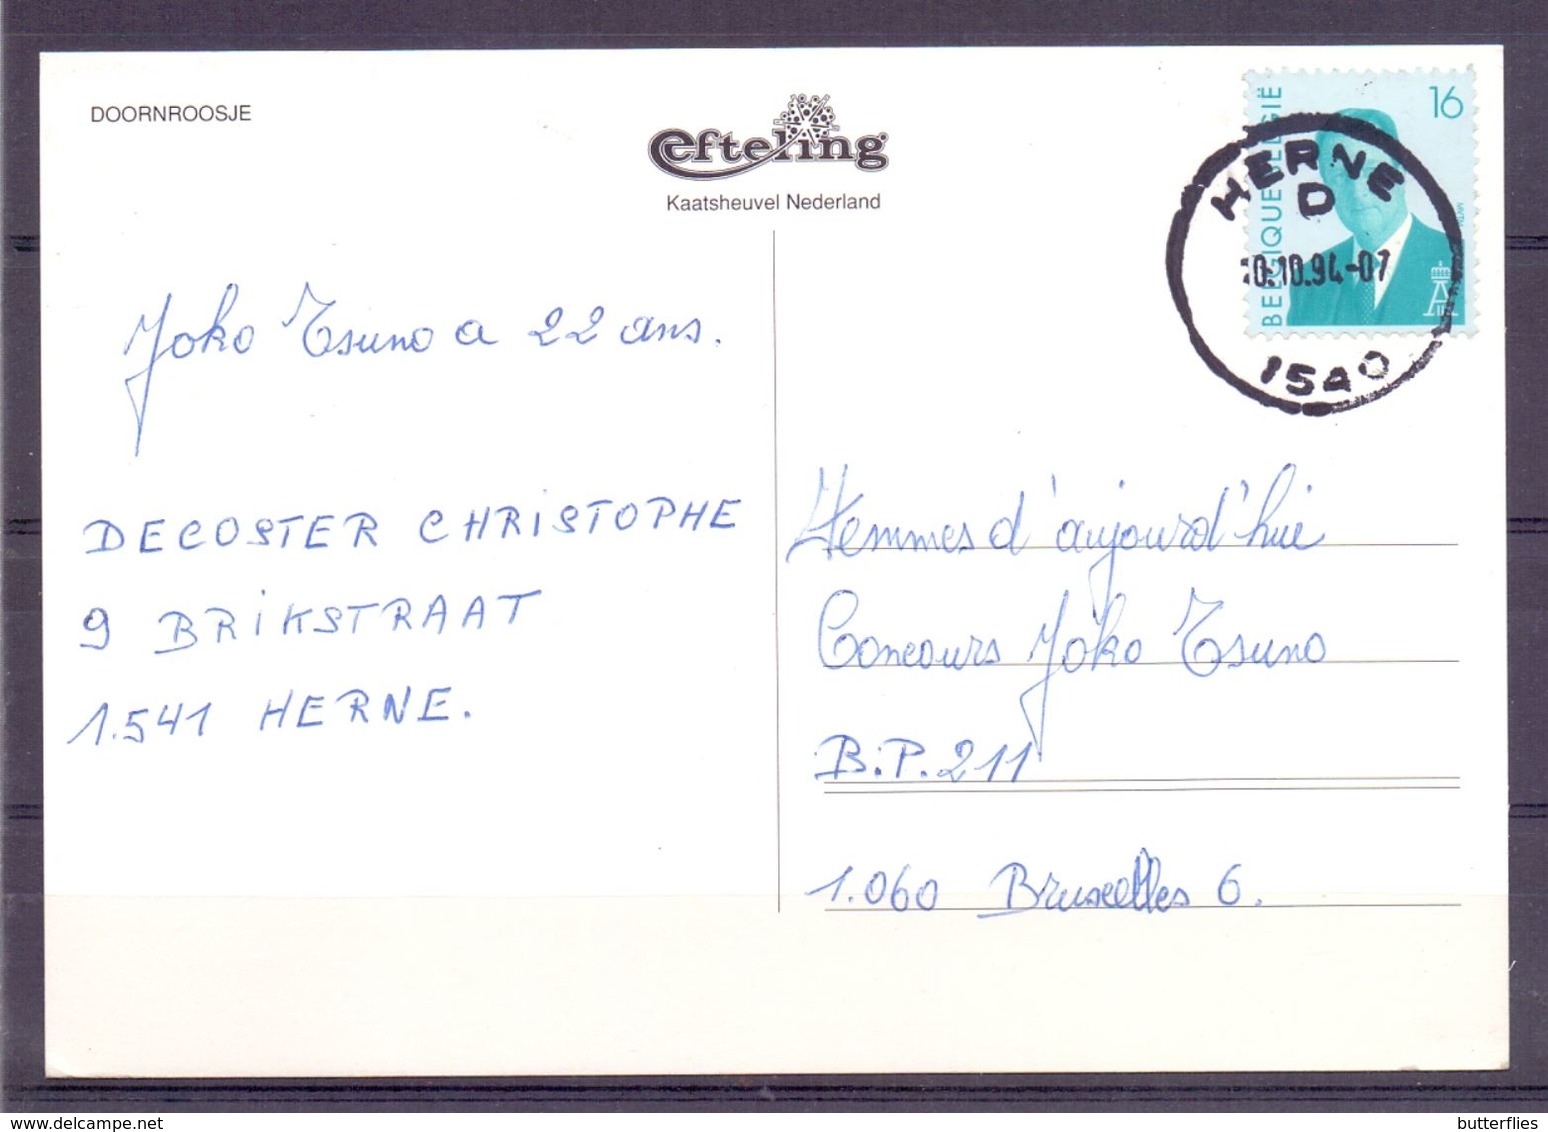 DOORNROOSJE
efteling
Kaatsheuvel Nederland
16
BELGIQUE BELGIË
HERNE
D
0.10.94-07
1540
Yoko Tsuno a 22 ans.
DECOSTER CHRISTOPHE
9 BRIKSTRAAT
1.541 HERNE.
Femmes d'aujourd'hui
Concours Yoko Tsuno
B.P. 211
1.060 Bruxelles 6.
delcampe.net
butterflies